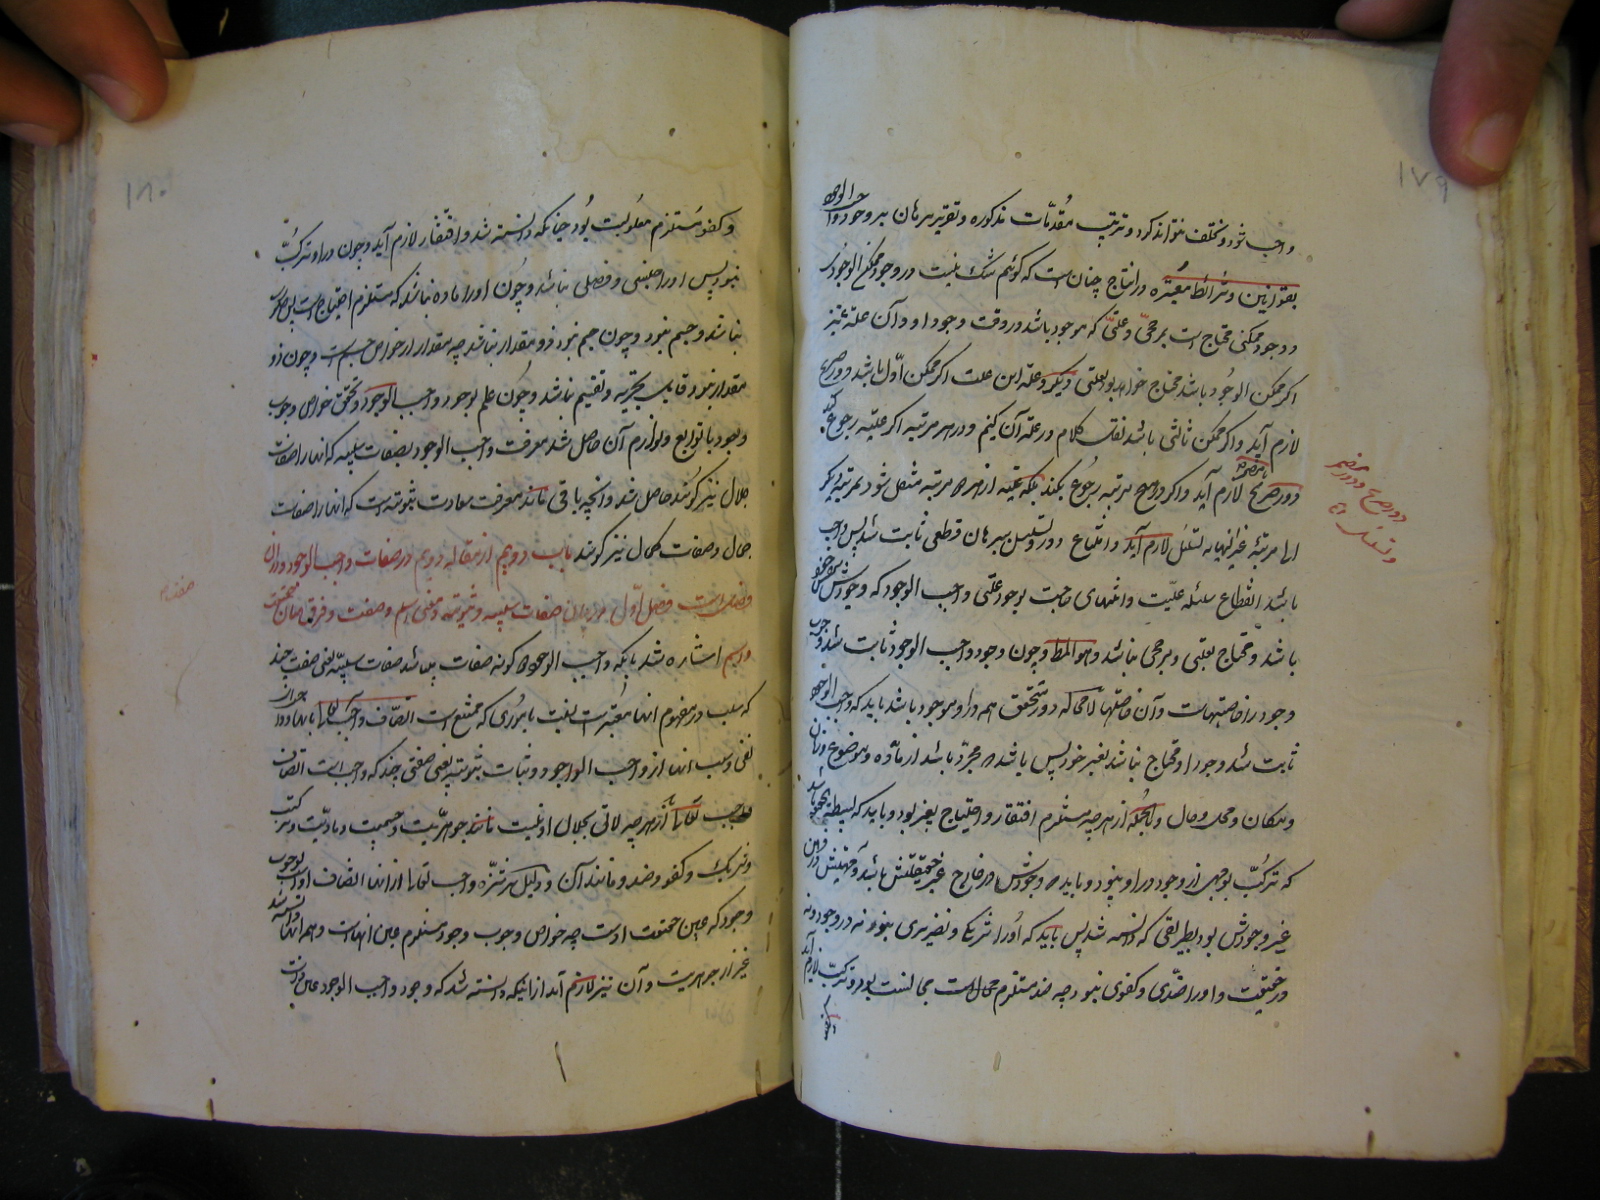 ۱۷۹
واجب شود و تخلف نتواند کرد و ترتیب مقدمات مذکوره و تقریر برهان بر وجود واجب الوجود
بقوانین و شرائط معتبره در انتاج چنان است که گوئیم شک نیست در وجود ممکن الوجود
و وجود ممکنی محتاج است بمرجحی و علتی که موجود باشد در وقت وجود او و آن علة نیز
اگر ممکن الوجود باشد محتاج خواهد بود بعلتی دیگر و علة این علت اگر ممکن اول باشد دور صریح
لازم آید و اگر ممکن ثالثی باشد نقل کلام در علة آن کنیم و در هر مرتبه اگر علیه رجوع کند
دور صریح یا مضمر لازم آید و اگر در هیچ مرتبه رجوع نکند بلکه علیة از هر مرتبه منتقل شود بمرتبه دیگر
الی مرتبة غیر النهایه تسلسل لازم آید و امتناع دور و تسلسل ببرهان قطعی ثابت شد پس واجب
باشد انقطاع سلسله علیت و انتهای حاجت بوجود علتی واجب الوجود که وجودش
باشد و محتاج بعلتی و مرجحی نباشد و هو المط و چون وجود واجب الوجود ثابت شد و وجوب
وجود را خاصیتهاست و آن خاصیتها لا محاله در متحقق هم در او موجود باشد باید که واجب الوجود
ثابت شد وجود او محتاج نباشد بغیر خود پس باید که مجرد باشد از ماده و موضوع و زمان
و مکان و محل و حال و بالجمله از هرچه مستلزم افتقار و احتیاج بغیر بود و باید که بسیط
که ترکب بوجهی از وجوه در او نبود و باید که وجودش در خارج غیر حقیقتش باشد و حقیقتش در ذهن
غیر وجودش بود بطریقی که دانسته شد پس باید که او را شریکی و نظیری نبود نه در وجود و نه
در حقیقت و او را ضدی و کفوی نبود چه ضد مستلزم محال است مجالست بود و ترکب لازم آید
و کفو
دور صریح و دور مضمر
و تسلسل
۱۸۰
و کفو مستلزم معلولیت بود چنانکه دانسته شد و افتقار لازم آید و چون در او ترکب
نبود پس او را جنسی و فصلی نباشد و چون او را ماده نباشد که مستلزم احتیاج است پس صورت
نباشد و جسم نبود و چون جسم نبود ذو مقدار نباشد چه مقدار از خواص جسم است و چون ذو
مقدار نبود قابل تجزیه و تقسیم نباشد و چون علم بوجود واجب الوجود و تحقق خواص وجوب
وجود با توابع و لوازم آن حاصل شد معرفت واجب الوجود بصفات سلبیه که آنها را صفات
جلال نیز گویند حاصل شد و آنچه باقی ماند معرفت صفات ثبوتیه است که آنها را صفات
جمال و صفات کمال نیز گویند باب دویم از مقاله دویم در صفات واجب الوجود و در آن
فصل است فصل اول در بیان صفات سلبیه و ثبوتیه و معنی اسم و صفت و فرق میان صفت
و اسم اشاره شد بآنکه واجب الوجود را دو گونه صفات میباشد صفات سلبیه یعنی صفتی چند
که سلب در مفهوم آنها معتبر است بنسبت باموری که ممتنع است اتصاف واجب تعالی بآنها
نفی و سلب آنها از واجب الوجود و صفات ثبوتیه یعنی صفتی چند که واجب است اتصاف
واجب تعالی از هرچه لایق بجلال او نیست مانند جوهریت و جسمیت و مادیت و ترکب
و شریک و کفو و ضد و مانند آن و دلیل بر تنزه واجب تعالی از آنها اتصاف اوست بوجوب
وجود که عین حقیقت اوست چه خواص وجوب وجود مستلزم عین آنهاست و همه آنها دانسته شد
غیر از جوهریت و آن نیز لازم آید از اینکه دانسته شد که وجود واجب الوجود عین ذات